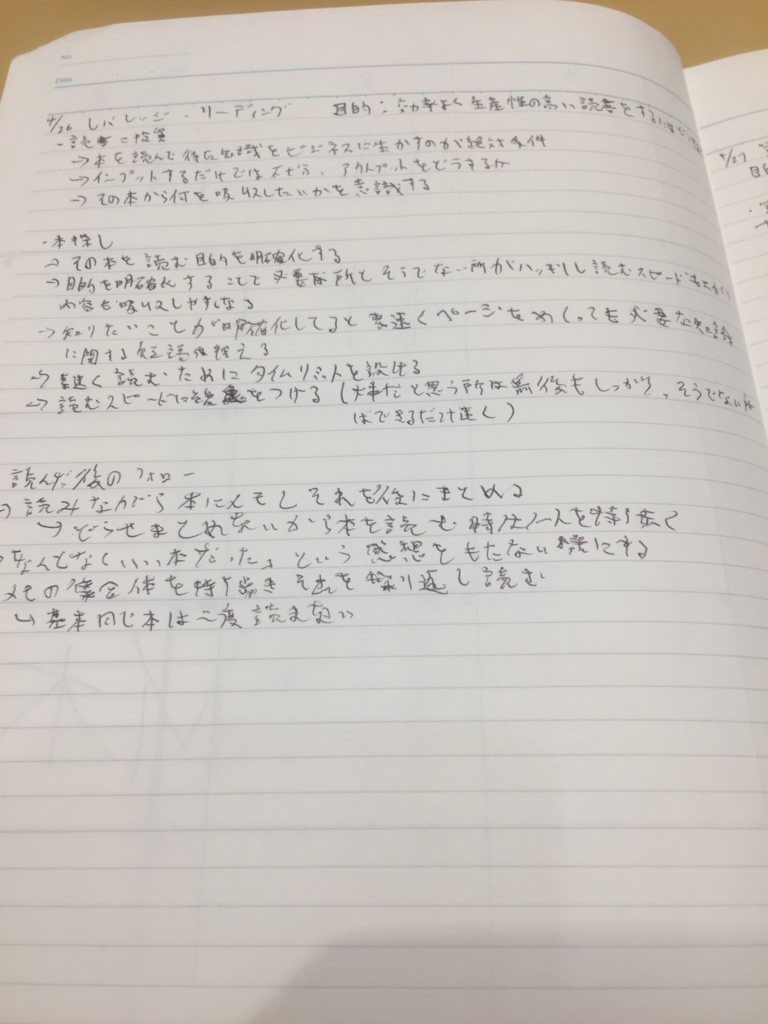 No.
Date
4/26 レバレッジ・リーディング 目的:効率よく生産性の高い読書をするには
・読書=投資
→本を読んで得た知識をビジネスに生かすのが絶対条件
→インプットするだけではなく、アウトプットをどうするか
→その本から何を吸収したいかを意識する
・本探し
→その本を読む目的を明確化する
→目的を明確化することで必要な所とそうでない所がハッキリし読むスピードも上がり
内容も吸収しやすくなる
→知りたいことが明確化してると素速くページをめくっても必要な知識
に関する単語は捉える
→素速く読むためにタイムリミットを設ける
→読むスピードに緩急をつける(大事だと思う所は前後もしっかり、そうでない所
はできるだけ速く)
読んだ後のフォロー
→読みながら本にメモしそれを後にまとめる
↳どうせまとめないから本を読む時はノートを持ち歩く
なんとなくいい本だった」という感想をもたない様にする
メモの集合体を持ち歩きそれを繰り返し読む
↳基本同じ本は二度読まない
4/27
目的